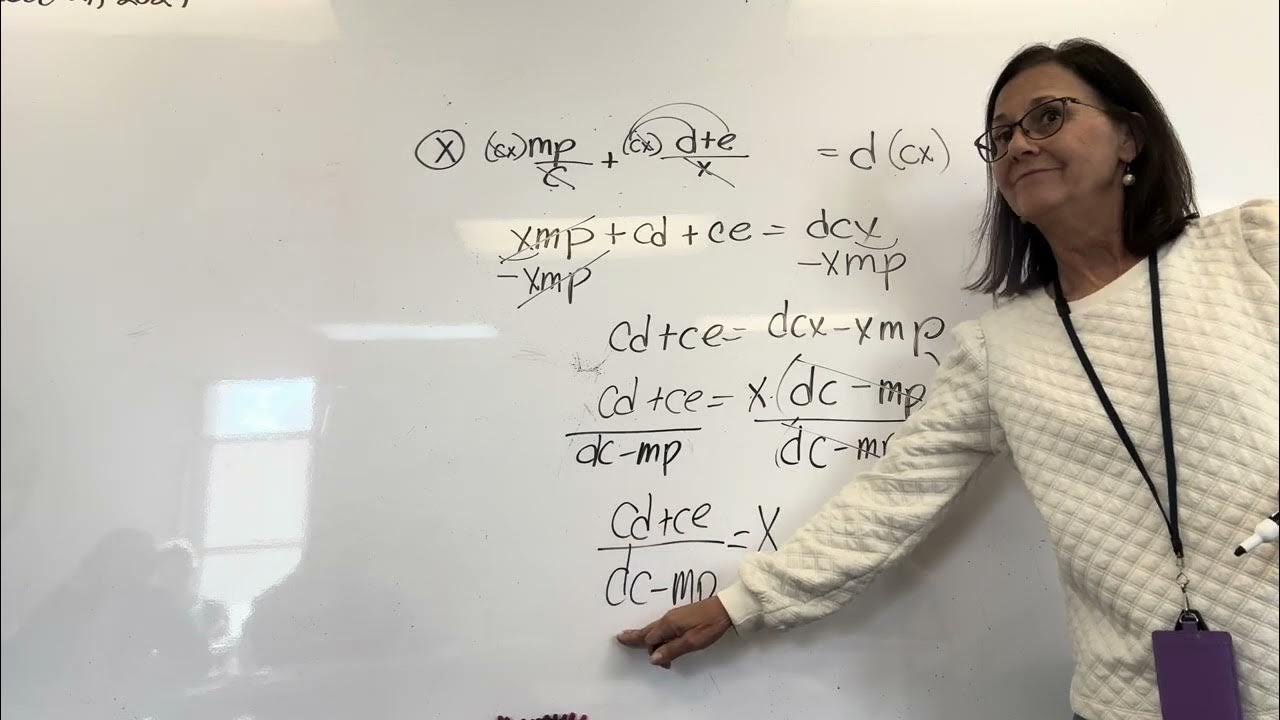 2024
Ⓧ (cx) mp/c + (cx) d+e/x = d(cx)
xmp + cd + ce = dcx
-xmp -xmp
cd+ce = dcx-xmp
cd+ce = x·(dc-mp
dc-mp (dc-m
cd+ce = x
dc-mp